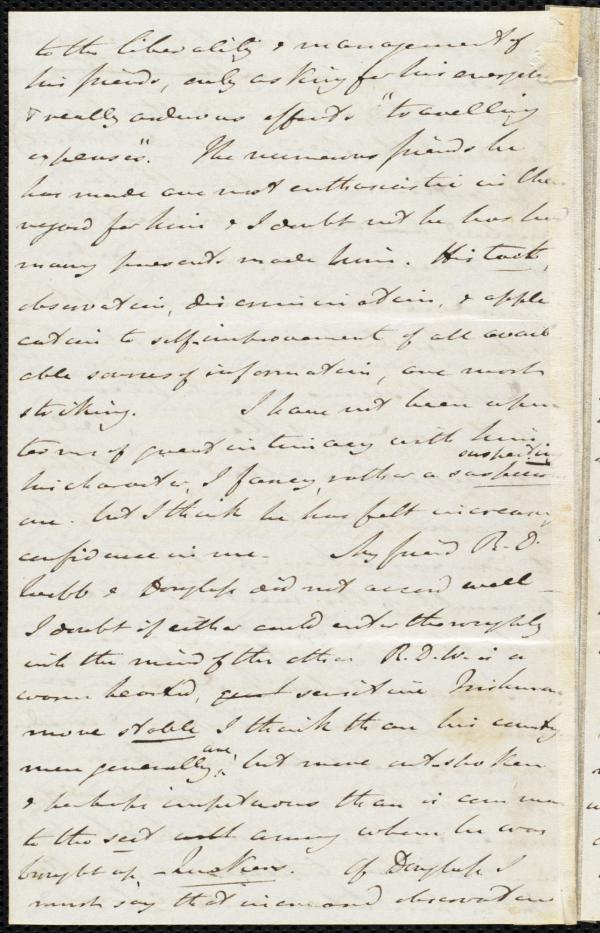 to the liberality & management of
his friends, only asking for his energetic
& really arduous efforts "travelling
expenses". The numerous friends he
has made are most enthusiastic in their
regard for him & I doubt not he has had
many presents made him. His tact,
observation, discrimination, & appli
cation to self-improvement of all avail
able sources of information, are most
striking. I have not been upon
terms of great intimacy with him
suspecting
his character, I fancy, rather a suspicious
one. but I think he has felt increasing
confidence in me. My friend R. D.
Webb & Douglass did not accord well –
I doubt if either could enter thoroughly
into the mind of the other. R. D. W. is a
warm hearted, sensitive Irishman
more stable I think than his country
men generally are, but more outspoken
& perhaps impetuous than is common
to the sect among whom he was
brought up – Quakers. Of Douglass I
must say that in our observation